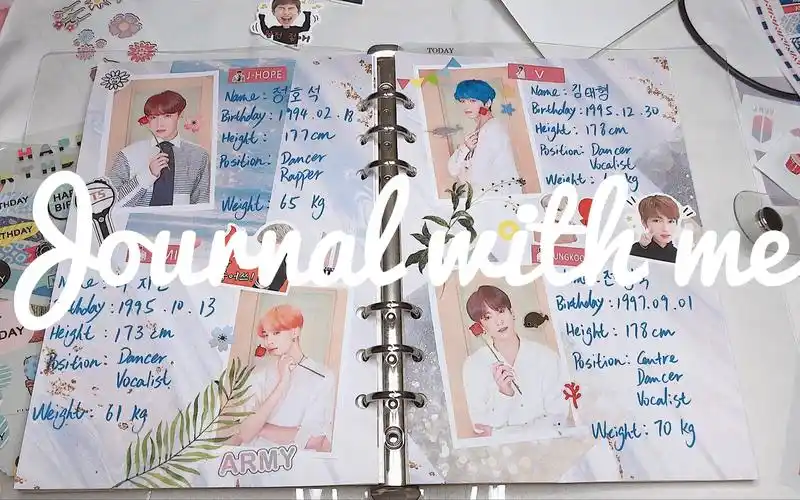 TODAY
J-HOPE
Name: 정호석
Birthday: 1994.02.18
Height: 177cm
Position: Dancer
Rapper
Weight: 65 kg
V
Name: 김태형
Birthday: 1995.12.30
Height: 178cm
Position: Dancer
Vocalist
Journal with me
thday: 1995.10.13
Height: 173 cm
Position: Dancer
Vocalist
Weight: 61 kg
ARMY
Birthday: 1997.09.01
Height: 178cm
Position: Centre
Dancer
Vocalist
Weight: 70 kg